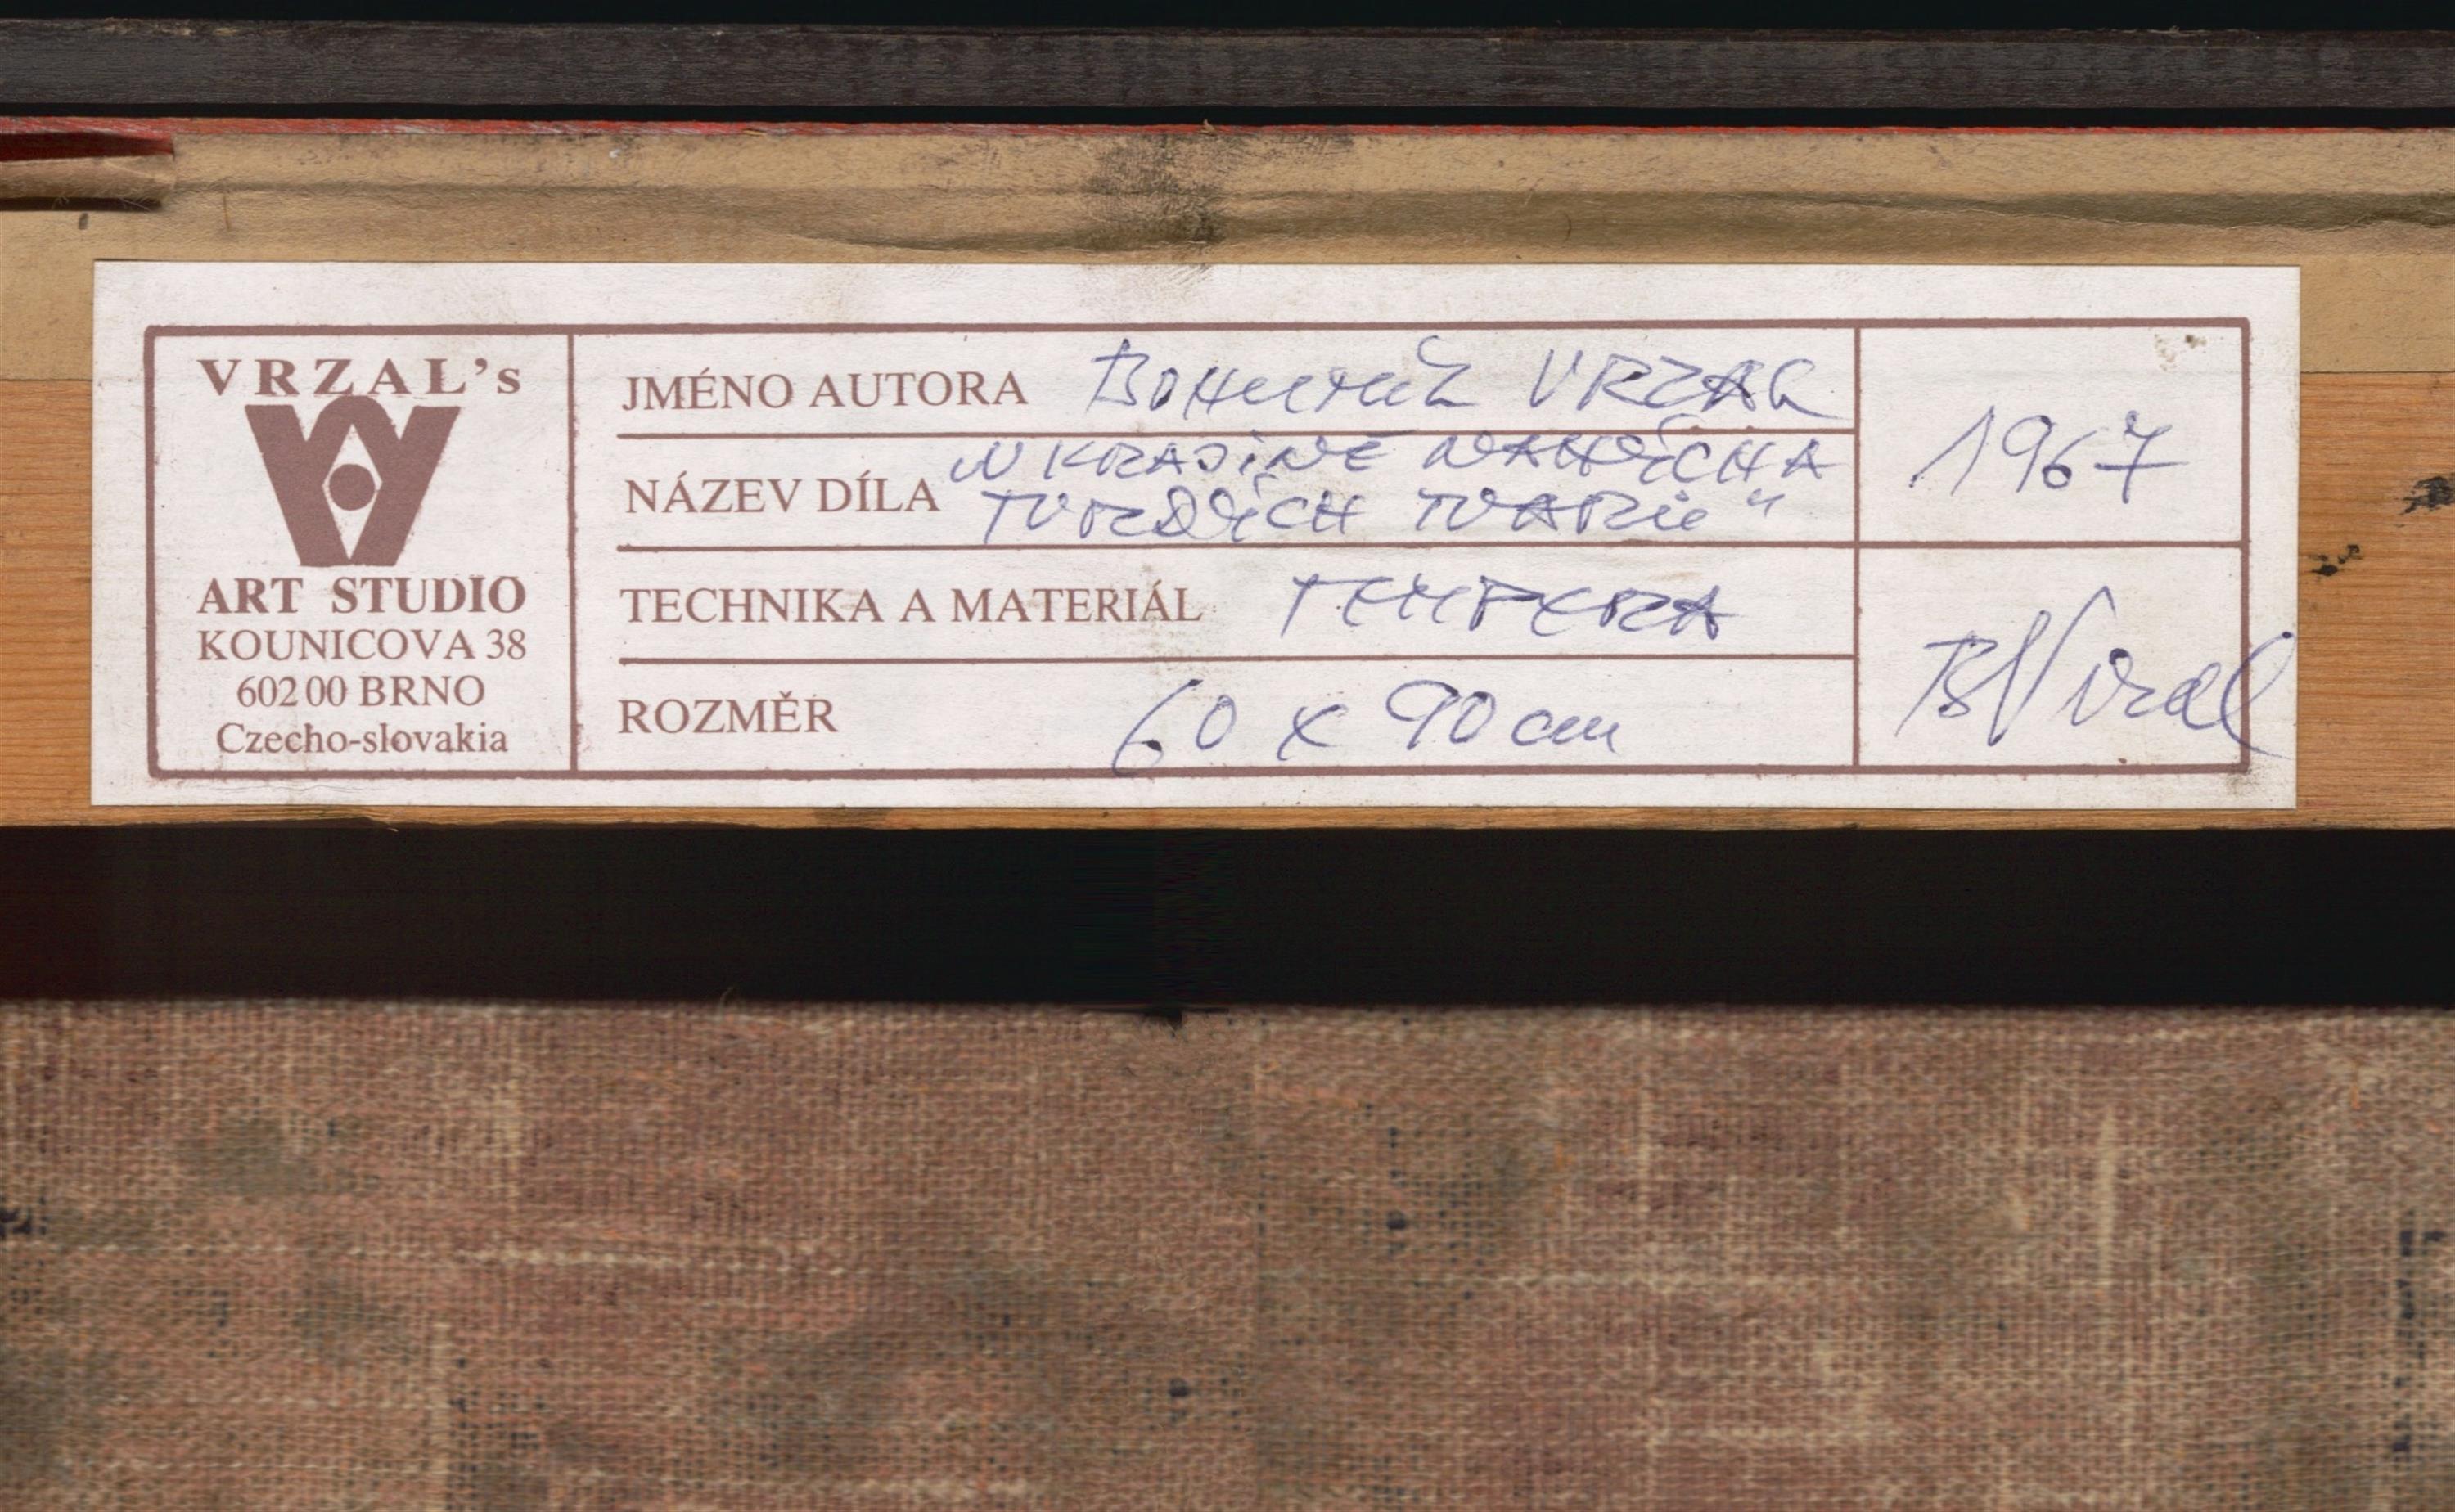 VRZAL's
ART STUDIO
KOUNICOVA 38
602 00 BRNO
Czecho-slovakia
JMÉNO AUTORA BOHUMIL VRZAL
NÁZEV DÍLA „V KRAJINĚ NAHÝCH A
TVRDÝCH TVARŮ“
TECHNIKA A MATERIÁL TEMPERA
ROZMĚR 60 x 90 cm
1967
BVrzal